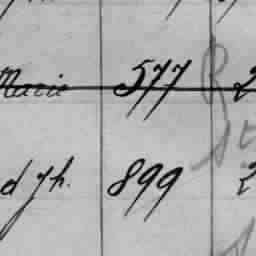 Marie 577 2
d Jh. 899 2